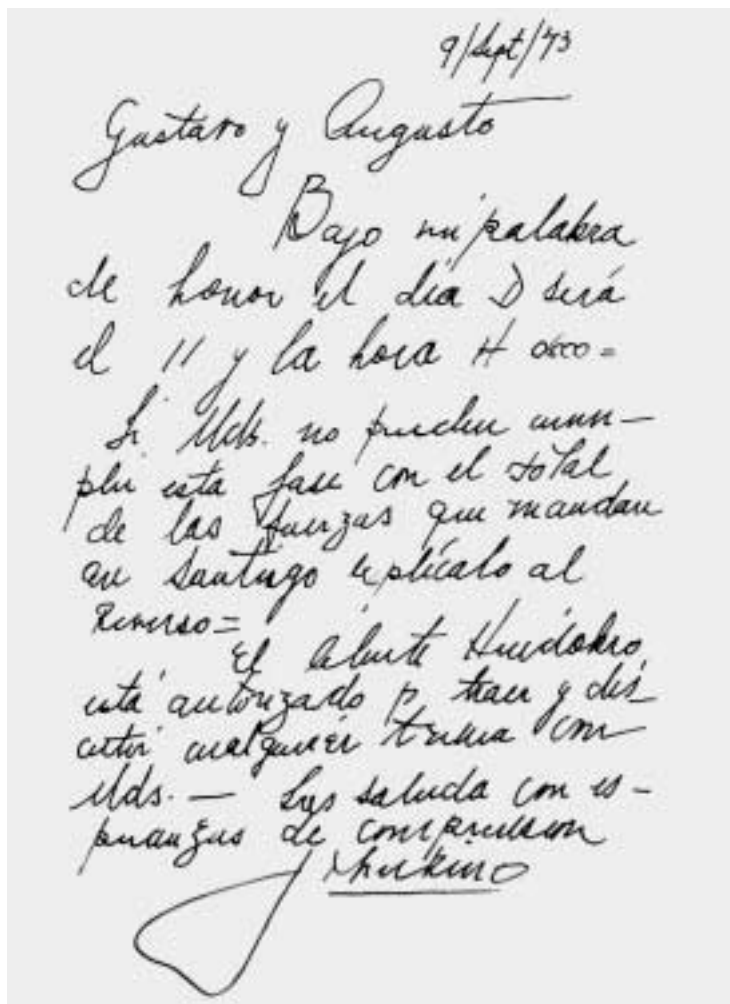 9/Sept/73
Gustavo y Augusto
Bajo mi palabra
de honor el día D será
el 11 y la hora H 0600=
Si Uds. no pueden cum—
plir esta fase con el total
de las fuerzas que mandan
en Santiago explícalo al
Reverso=
El Almte Huidobro
está autorizado p. traer y dis—
cutir cualquier tema con
Uds. — Les saluda con es—
peranzas de comprensión
J. T. Merino